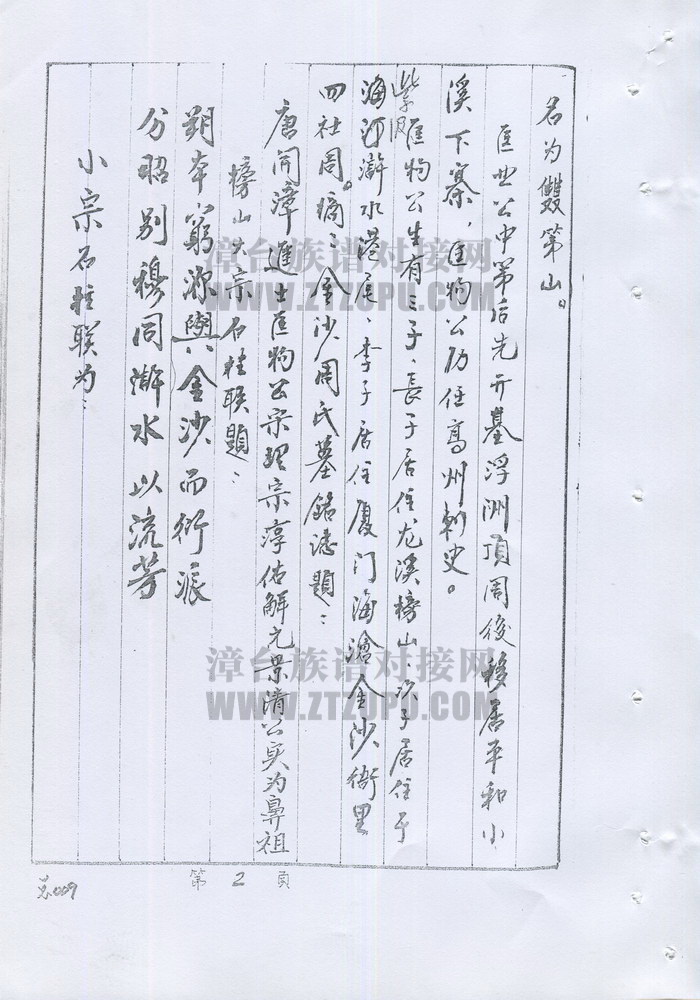 名为雙第山。
匡业公中第后先开基浮洲頂周後移居平和小
溪下寨，匡物公历任高州刺史。
匡物公生有三子、長子居住龙溪榜山、次子居住于
海澄澥水港尾、李子居住厦门海滄金沙衙里
四社周。 金沙周氏墓銘誌題：
唐開漳進士匡物公宋理宗淳佑解元景清公实为鼻祖
榜山大宗石柱联題：
朔本窮源與金沙而衍派
分昭别穆同澥水以流芳
小宗石柱联为：
第2頁
总009
漳台族谱对接网
WWW.ZTZUPU.COM
漳台族谱对接网
WWW.ZTZUPU.COM